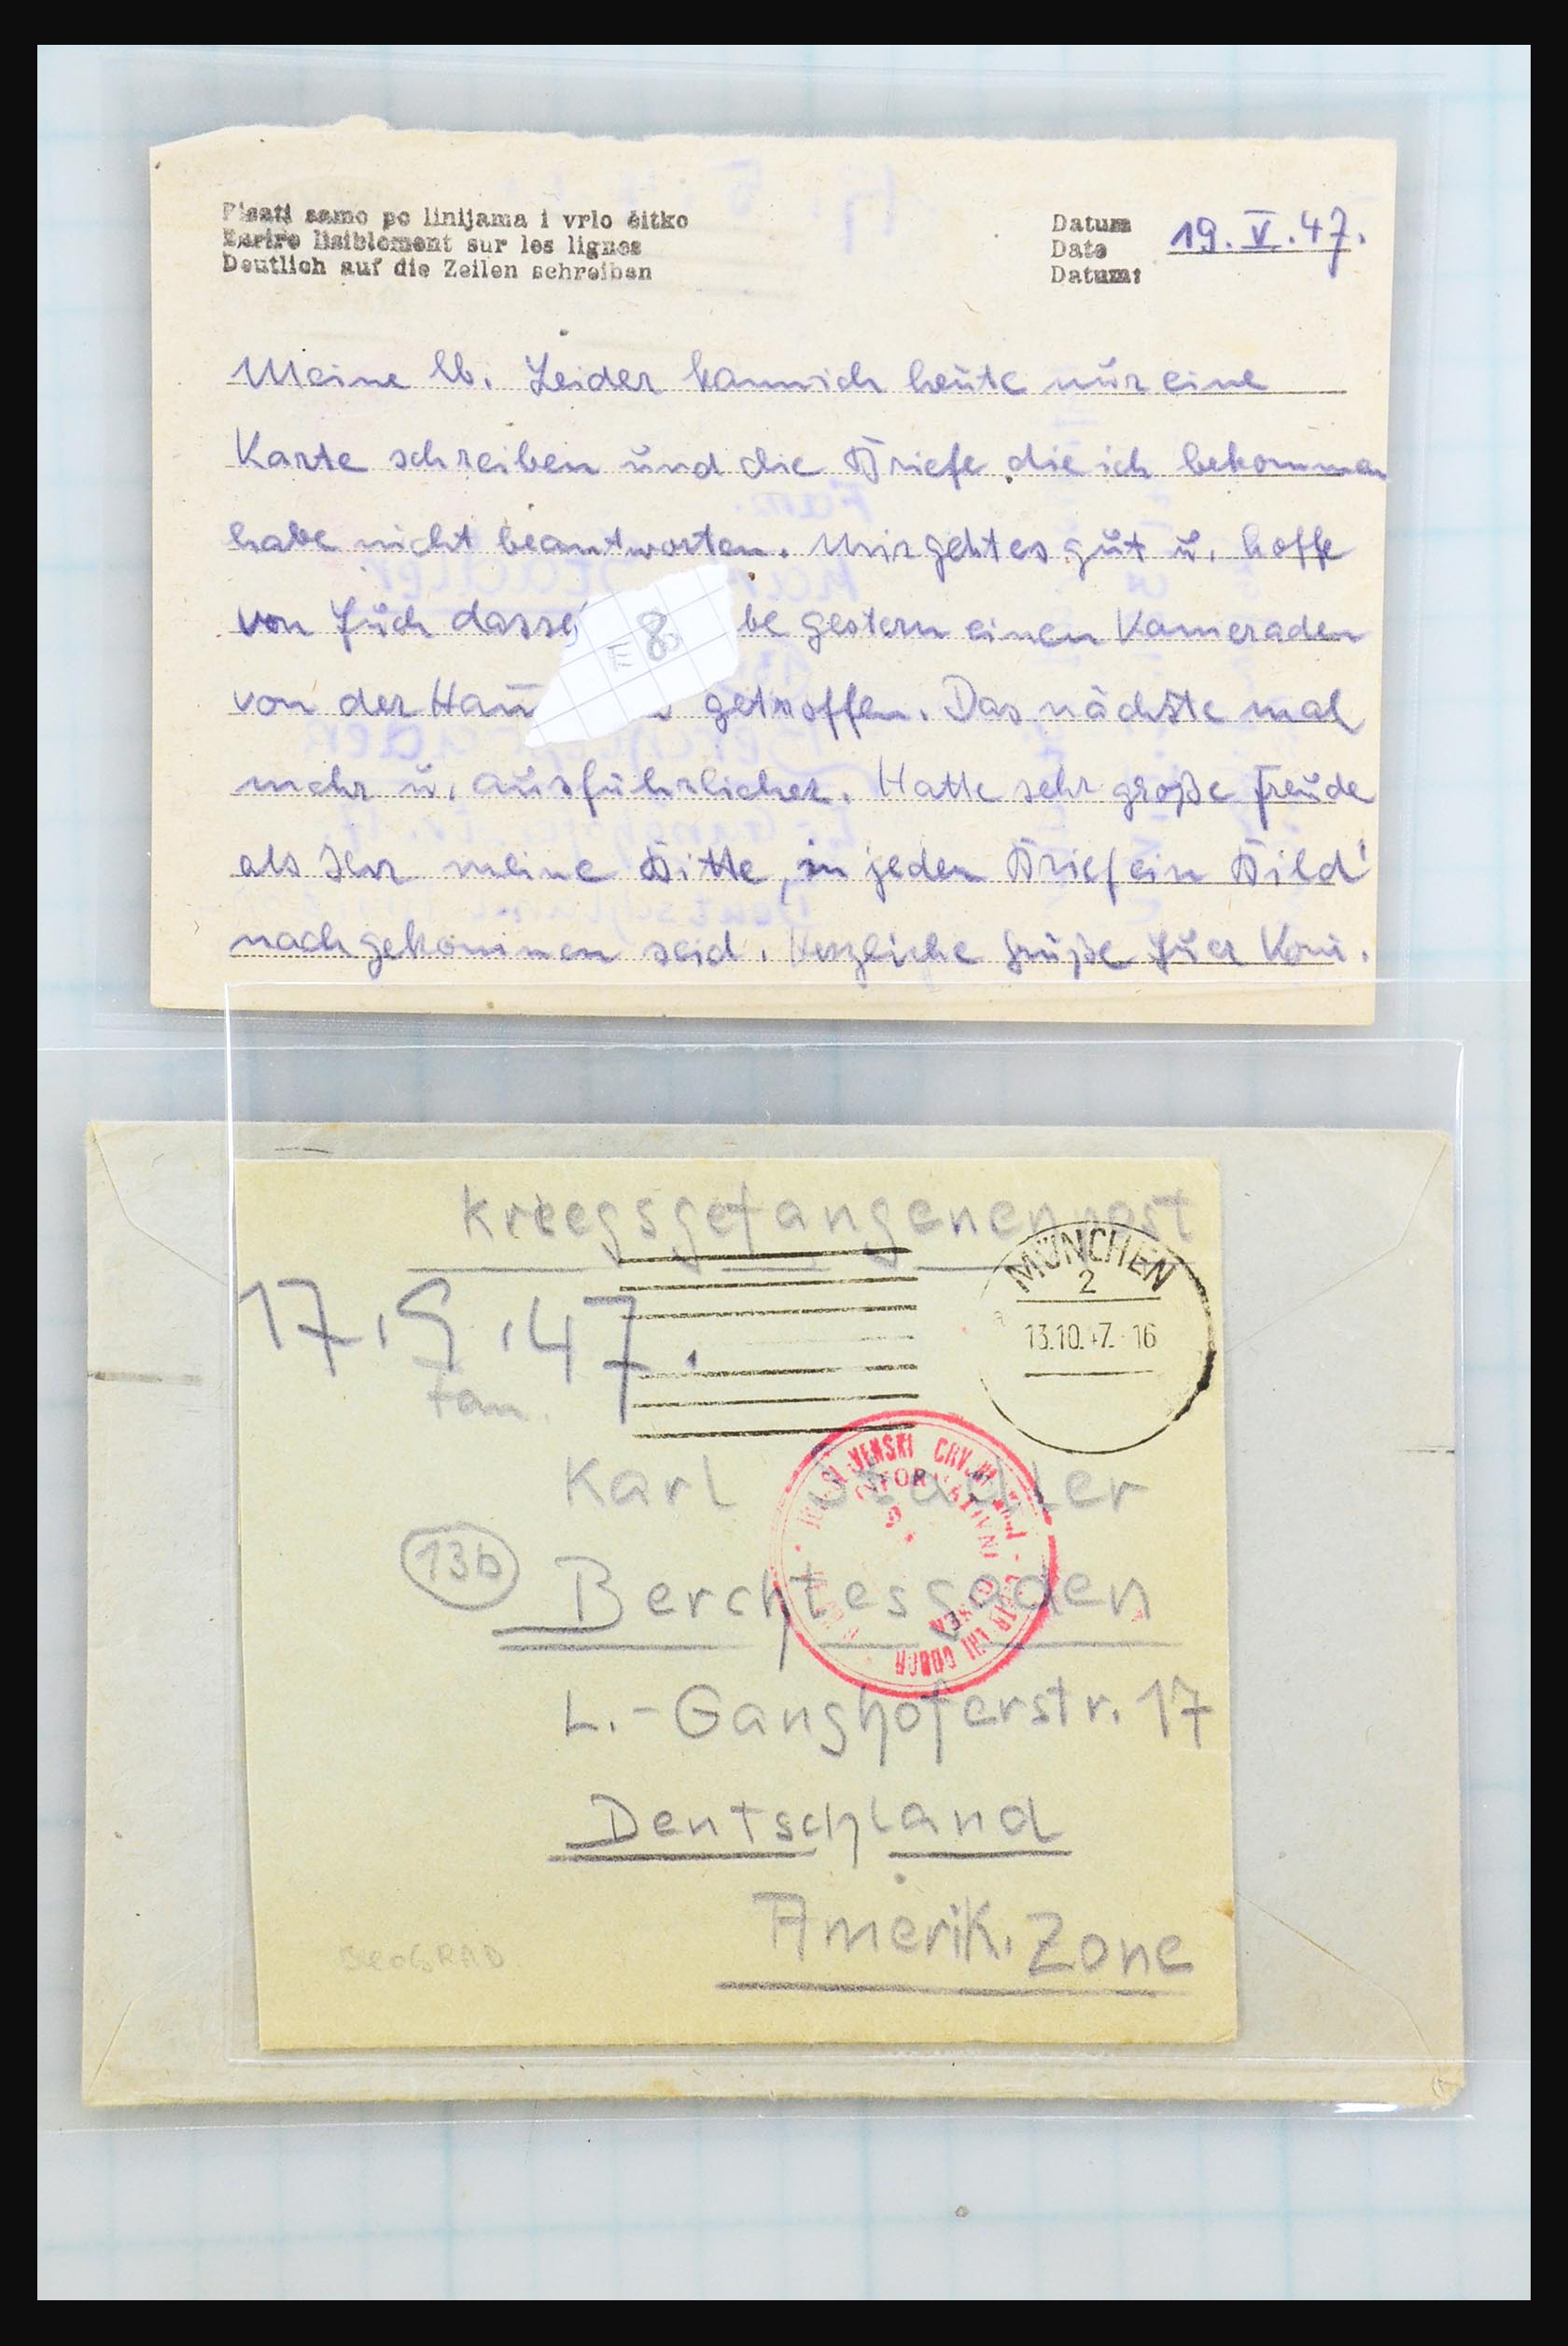 Pisati samo po linijama i vrlo čitko
Ecrire lisiblement sur les lignes
Deutlich auf die Zeilen schreiben
Datum
Date
Datum:
19. V. 47.
Meine lb. Leider kann ich heute nur eine
Karte schreiben und die Briefe die ich bekommen
habe nicht beantworten. Mir geht es gut u. hoffe
von Euch dasse be gestern einen Kameraden
von der Hau getroffen. Das nächste mal
mehr u. ausführlicher. Hatte sehr große Freude
als Ihr meine Bitte, in jeden Brief ein Bild'
nachgekommen seid. Herzliche Grüße Euer Koni.
E 8
Kriegsgefangenenpost
MÜNCHEN
2
a
13.10.47.-16
17.9.47.
Fam.
Karl Stadler
13b
Berchtesgaden
L.-Ganghoferstr. 17
Deutschland
Amerik. Zone
BEOGRAD